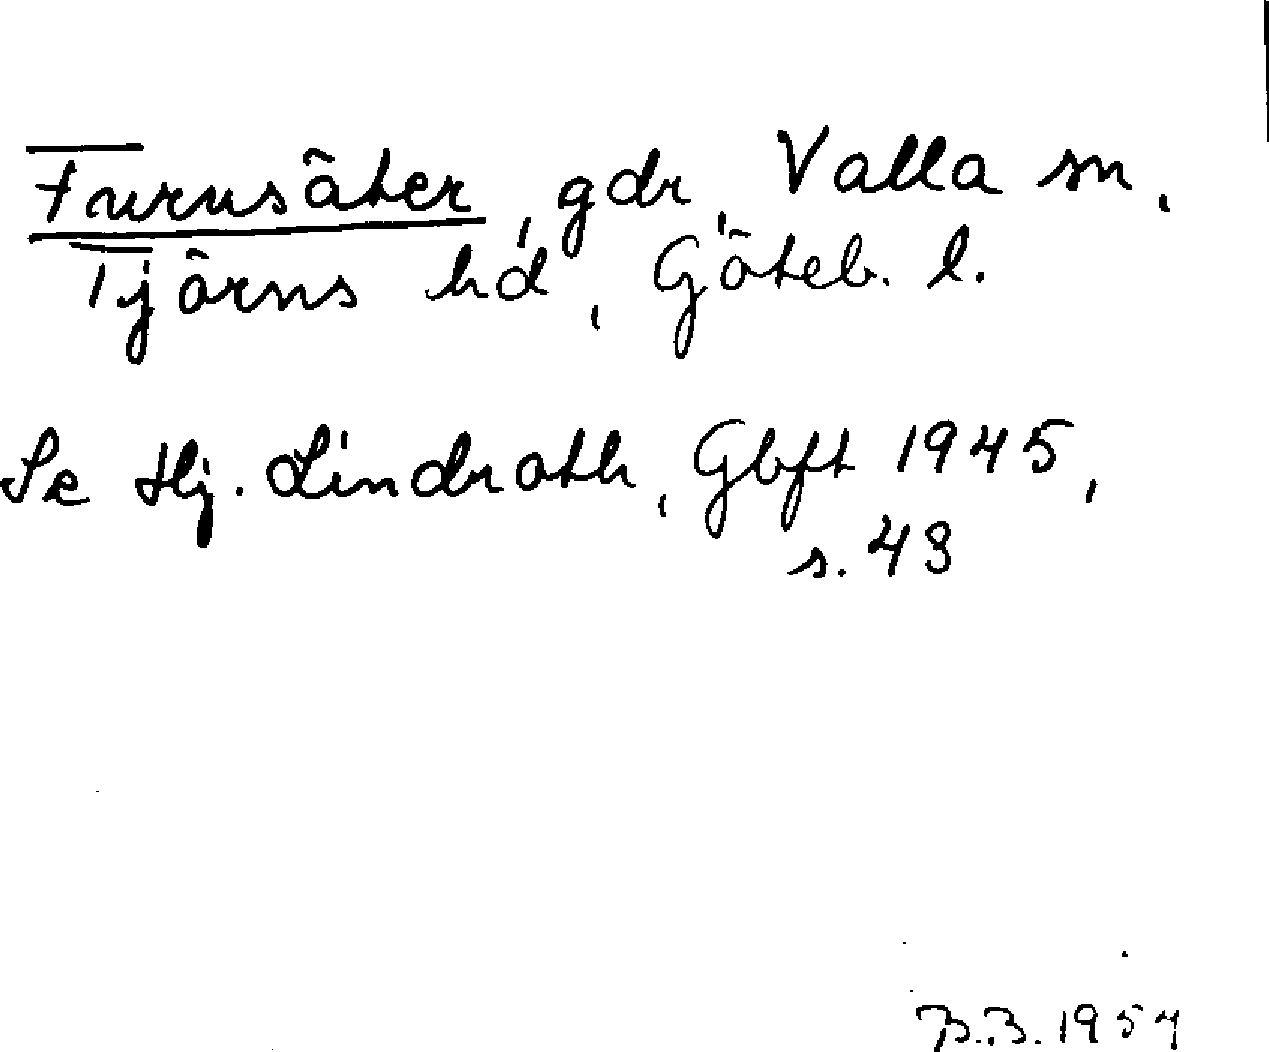 Furusäter, gdr, Valla sn,
Tjörns hd, Göteb. l.
Se Hj. Lindroth, Gbft 1945,
s. 43
B.B. 1954